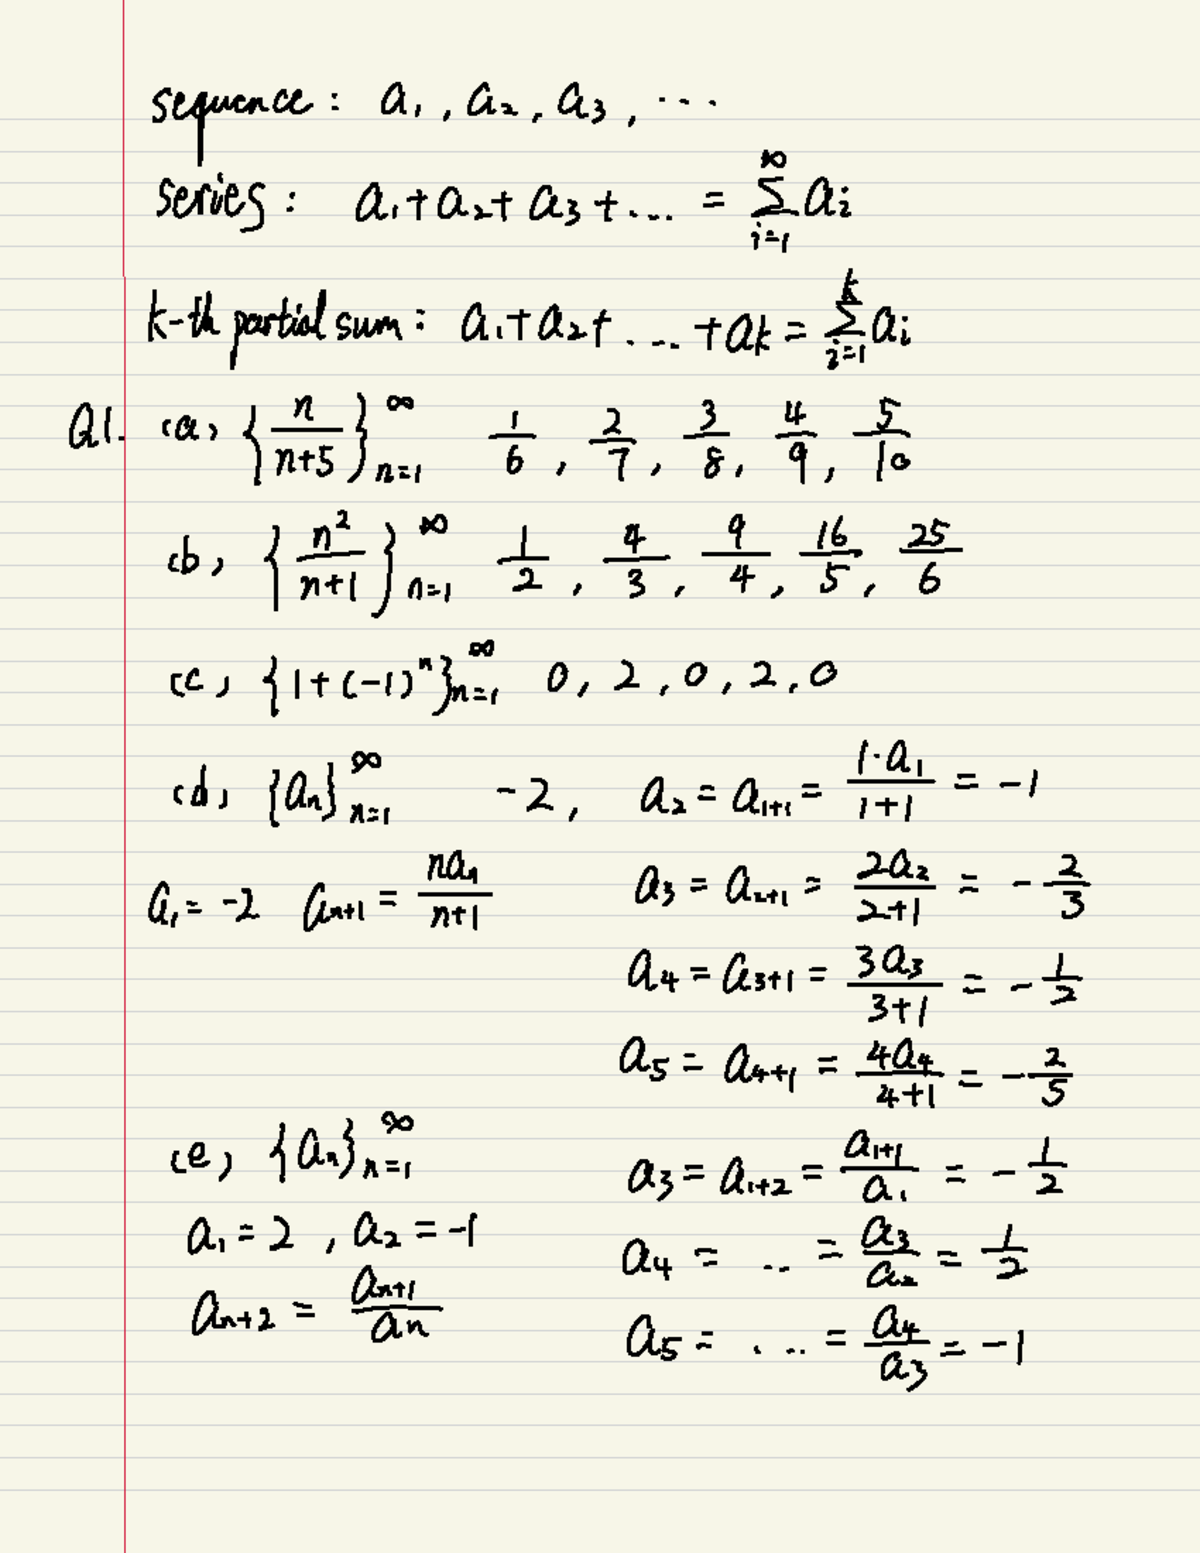 sequence: a₁, a₂, a₃, ...
series: a₁+a₂+a₃+... = ∑_{i=1}^{∞} aᵢ
k-th partial sum: a₁+a₂+ ... +aₖ = ∑_{i=1}^{k} aᵢ
Q1. (a) {n/(n+5)}_{n=1}^{∞} 1/6, 2/7, 3/8, 4/9, 5/10
(b) {n²/(n+1)}_{n=1}^{∞} 1/2, 4/3, 9/4, 16/5, 25/6
(c) {1+(-1)ⁿ}_{n=1}^{∞} 0, 2, 0, 2, 0
(d) {aₙ}_{n=1}^{∞} -2, a₂ = a₁₊₁ = (1·a₁)/(1+1) = -1
a₁ = -2 aₙ₊₁ = (naₙ)/(n+1) a₃ = a₂₊₁ = (2a₂)/(2+1) = -2/3
a₄ = a₃₊₁ = (3a₃)/(3+1) = -1/2
a₅ = a₄₊₁ = (4a₄)/(4+1) = -2/5
(e) {aₙ}_{n=1}^{∞} a₃ = a₁₊₂ = a₁₊₁/a₁ = -1/2
a₁ = 2, a₂ = -1 a₄ = ... = a₃/a₂ = 1/2
aₙ₊₂ = aₙ₊₁/aₙ a₅ = ... = a₄/a₃ = -1